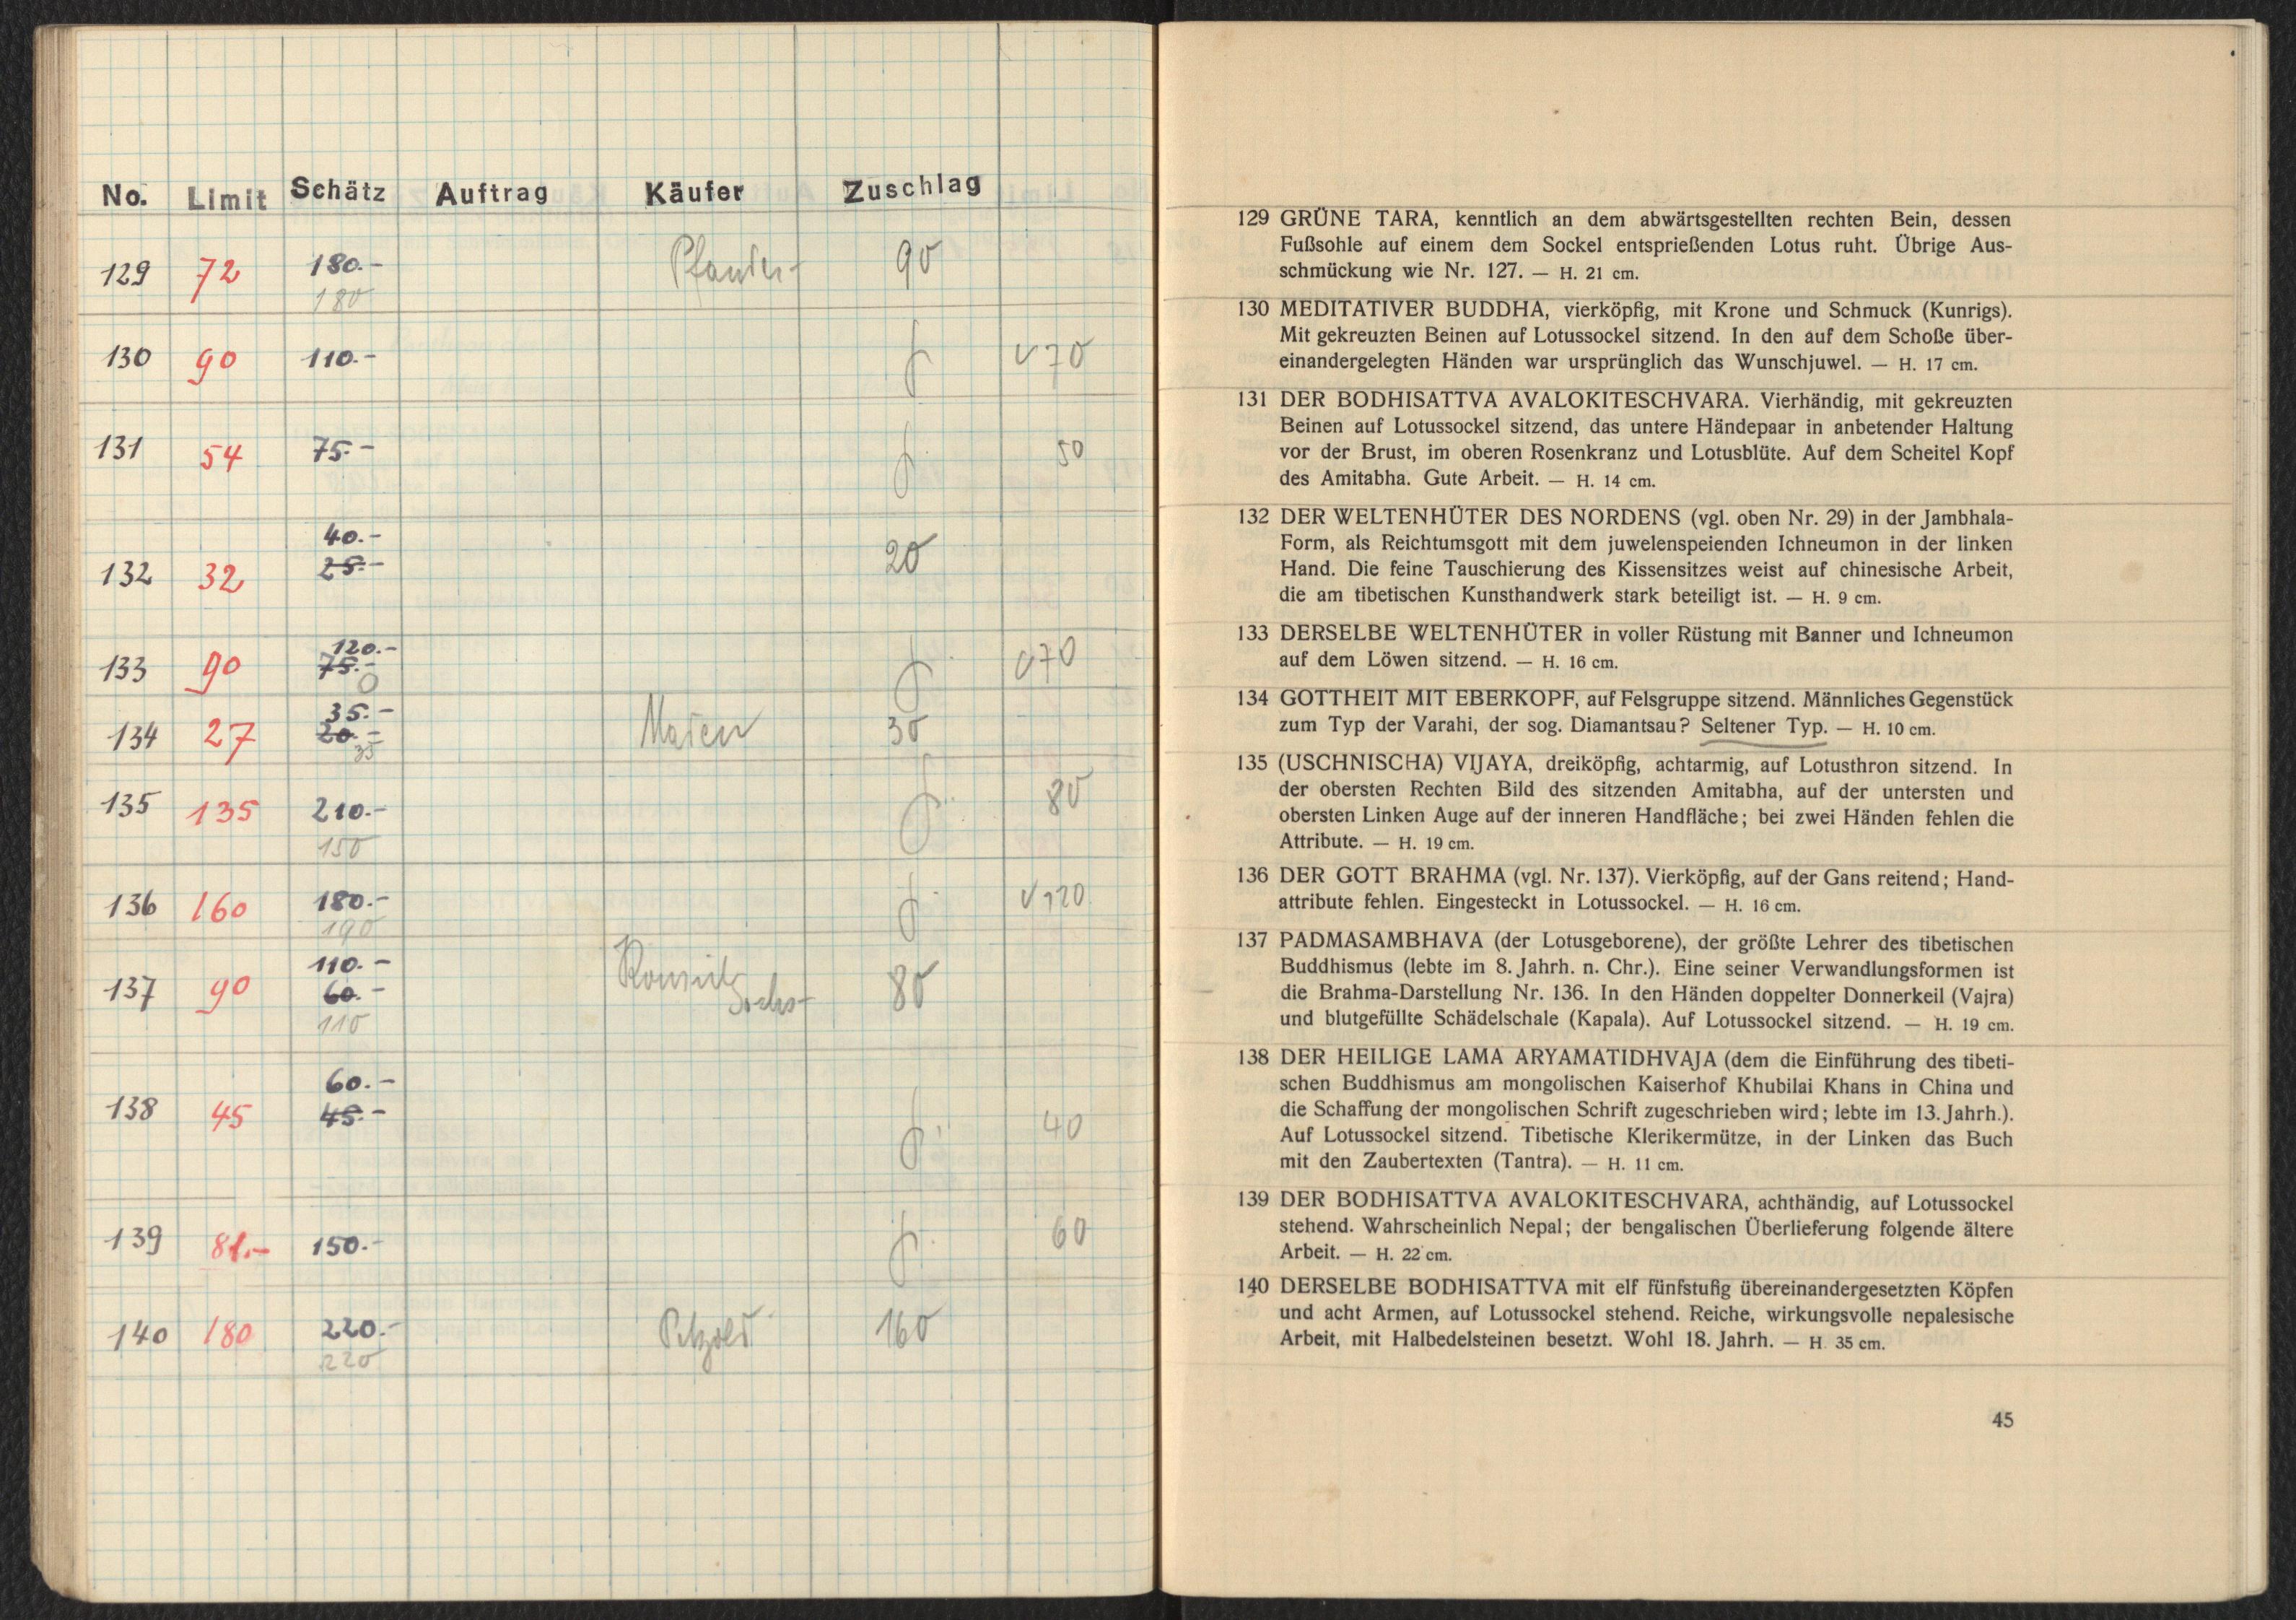 No. Limit Schätz Auftrag Käufer Zuschlag
129 72 180.- 90
180
130 90 110.- 70
131 54 75.- 50
40.-
132 32 25.- 20
120.-
133 90 75.- 70
0
35.-
134 27 20.- 30
35
135 135 210.- 80
150
136 160 180.- 120
190
110.-
137 90 60.- 80
110
60.-
138 45 45.- 40
139 81.- 150.- 60
140 180 220.- Petzold 160
220
129 GRÜNE TARA, kenntlich an dem abwärtsgestellten rechten Bein, dessen
Fußsohle auf einem dem Sockel entsprießenden Lotus ruht. Übrige Aus-
schmückung wie Nr. 127. — H. 21 cm.
130 MEDITATIVER BUDDHA, vierköpfig, mit Krone und Schmuck (Kunrigs).
Mit gekreuzten Beinen auf Lotussockel sitzend. In den auf dem Schoße über-
einandergelegten Händen war ursprünglich das Wunschjuwel. — H. 17 cm.
131 DER BODHISATTVA AVALOKITESCHVARA. Vierhändig, mit gekreuzten
Beinen auf Lotussockel sitzend, das untere Händepaar in anbetender Haltung
vor der Brust, im oberen Rosenkranz und Lotusblüte. Auf dem Scheitel Kopf
des Amitabha. Gute Arbeit. — H. 14 cm.
132 DER WELTENHÜTER DES NORDENS (vgl. oben Nr. 29) in der Jambhala-
Form, als Reichtumsgott mit dem juwelenspeienden Ichneumon in der linken
Hand. Die feine Tauschierung des Kissensitzes weist auf chinesische Arbeit,
die am tibetischen Kunsthandwerk stark beteiligt ist. — H. 9 cm.
133 DERSELBE WELTENHÜTER in voller Rüstung mit Banner und Ichneumon
auf dem Löwen sitzend. — H. 16 cm.
134 GOTTHEIT MIT EBERKOPF, auf Felsgruppe sitzend. Männliches Gegenstück
zum Typ der Varahi, der sog. Diamantsau? Seltener Typ. — H. 10 cm.
135 (USCHNISCHA) VIJAYA, dreiköpfig, achtarmig, auf Lotusthron sitzend. In
der obersten Rechten Bild des sitzenden Amitabha, auf der untersten und
obersten Linken Auge auf der inneren Handfläche; bei zwei Händen fehlen die
Attribute. — H. 19 cm.
136 DER GOTT BRAHMA (vgl. Nr. 137). Vierköpfig, auf der Gans reitend; Hand-
attribute fehlen. Eingesteckt in Lotussockel. — H. 16 cm.
137 PADMASAMBHAVA (der Lotusgeborene), der größte Lehrer des tibetischen
Buddhismus (lebte im 8. Jahrh. n. Chr.). Eine seiner Verwandlungsformen ist
die Brahma-Darstellung Nr. 136. In den Händen doppelter Donnerkeil (Vajra)
und blutgefüllte Schädelschale (Kapala). Auf Lotussockel sitzend. — H. 19 cm.
138 DER HEILIGE LAMA ARYAMATIDHVAJA (dem die Einführung des tibeti-
schen Buddhismus am mongolischen Kaiserhof Khubilai Khans in China und
die Schaffung der mongolischen Schrift zugeschrieben wird; lebte im 13. Jahrh.).
Auf Lotussockel sitzend. Tibetische Klerikermütze, in der Linken das Buch
mit den Zaubertexten (Tantra). — H. 11 cm.
139 DER BODHISATTVA AVALOKITESCHVARA, achthändig, auf Lotussockel
stehend. Wahrscheinlich Nepal; der bengalischen Überlieferung folgende ältere
Arbeit. — H. 22 cm.
140 DERSELBE BODHISATTVA mit elf fünfstufig übereinandergesetzten Köpfen
und acht Armen, auf Lotussockel stehend. Reiche, wirkungsvolle nepalesische
Arbeit, mit Halbedelsteinen besetzt. Wohl 18. Jahrh. — H. 35 cm.
45